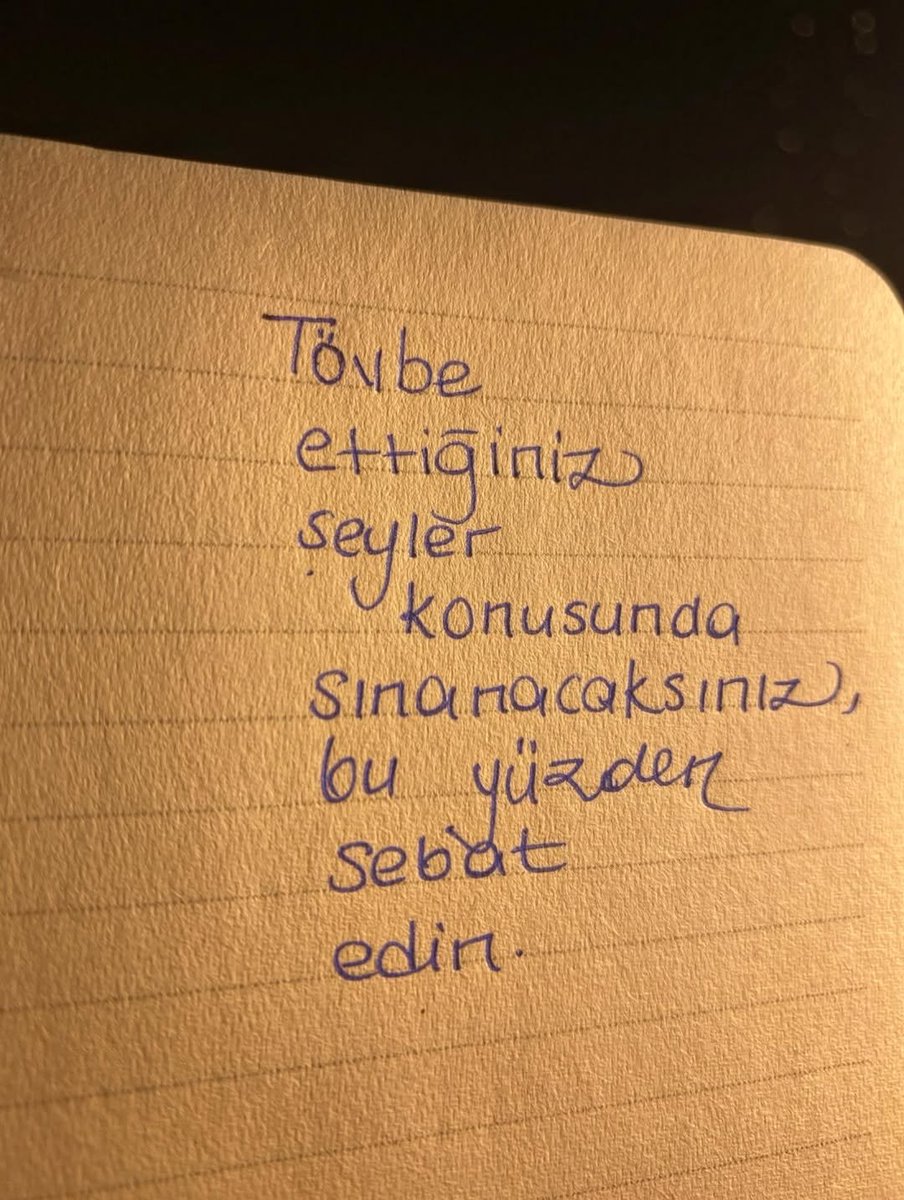 Tövbe
ettiğiniz
şeyler
konusunda
sınanacaksınız,
bu yüzden
sebat
edin.